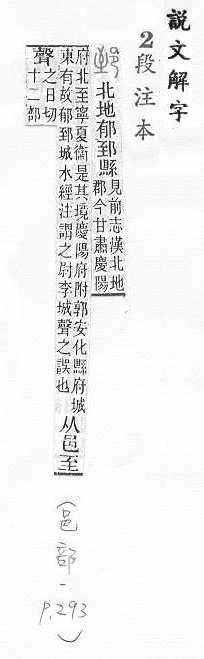 說文解字
2段注本
郅 北地郁郅縣見前志漢北地
郡今甘肅慶陽
府北至寧夏衞是其境慶陽府附郭安化縣府城
東有故郁郅城水經注謂之尉李城聲之誤也 从邑至
聲之日切
十二部
(邑部-
P.293)